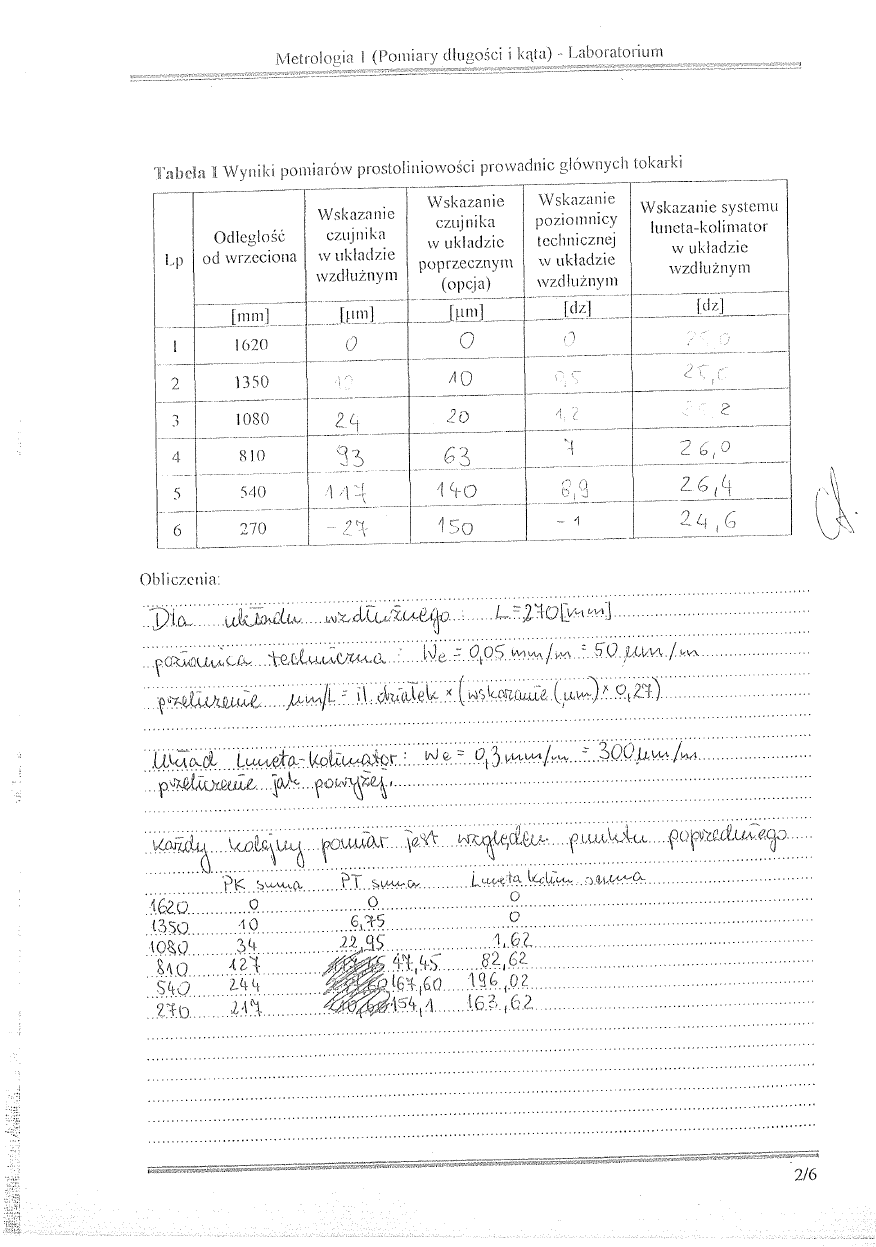 Metrologia I (Pomiary długości i kąta) - Laboratorium
Tabela 1 Wyniki pomiarów prostoliniowości prowadnic głównych tokarki
Lp | Odległość od wrzeciona | Wskazanie czujnika w układzie wzdłużnym | Wskazanie czujnika w układzie poprzecznym (opcja) | Wskazanie poziomnicy technicznej w układzie wzdłużnym | Wskazanie systemu luneta-kolimator w układzie wzdłużnym
[mm] | [µm] | [µm] | [dz] | [dz]
1 | 1620 | 0 | 0 | 0 | 25,0
2 | 1350 | 10 | 10 | 0,5 | 25,0
3 | 1080 | 24 | 20 | 1,2 | 2
4 | 810 | 93 | 63 | 7 | 26,0
5 | 540 | 117 | 140 | 8,9 | 26,4
6 | 270 | -27 | 150 | -1 | 24,6
Obliczenia:
Dla układu wzdłużnego: L=270[mm]
poziomnica techniczna: We = 0,05 mm/m = 50 µm/m
przeliczenie µm/L = il. działek × (wskazanie (µm) × 0,27)
Układ Luneta-Kolimator: We = 0,3 mm/m = 300 µm/m
przeliczenie jak powyżej.
każdy kolejny pomiar jest względem punktu poprzedniego
PK suma PT suma Luneta kolim suma
1620 0 0 0
1350 10 6,75 0
1080 34 22,95 1,62
810 127 47,45 82,62
540 244 167,60 196,02
270 217 154,1 163,62
2/6